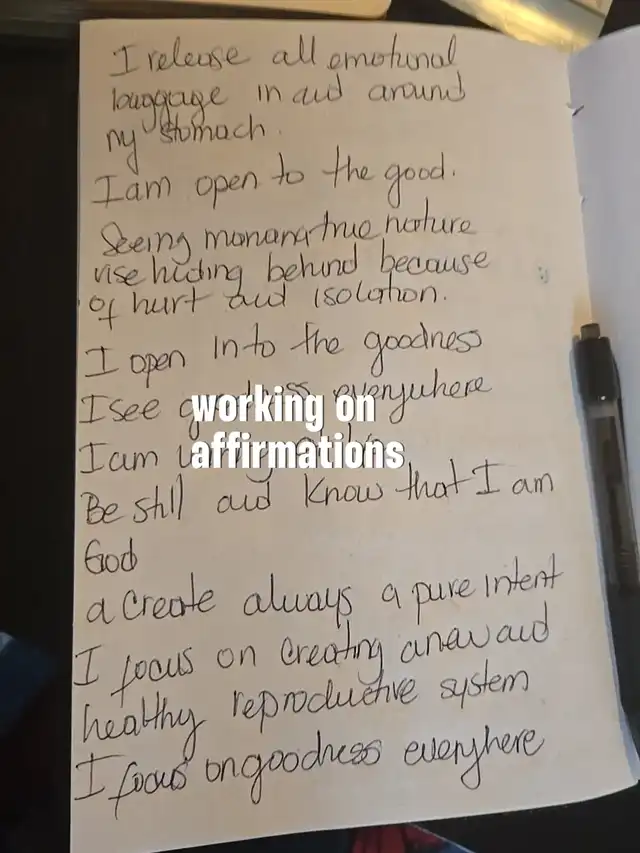 I release all emotional
baggage in and around
my stomach.
I am open to the good.
Seeing true nature
rise hiding behind because
of hurt and isolation.
I open into the goodness
I see everywhere
working on
affirmations
I am
Be still and know that I am
God
a create always a pure intent
I focus on creating a new and
healthy reproductive system
I focus on goodness everyhere